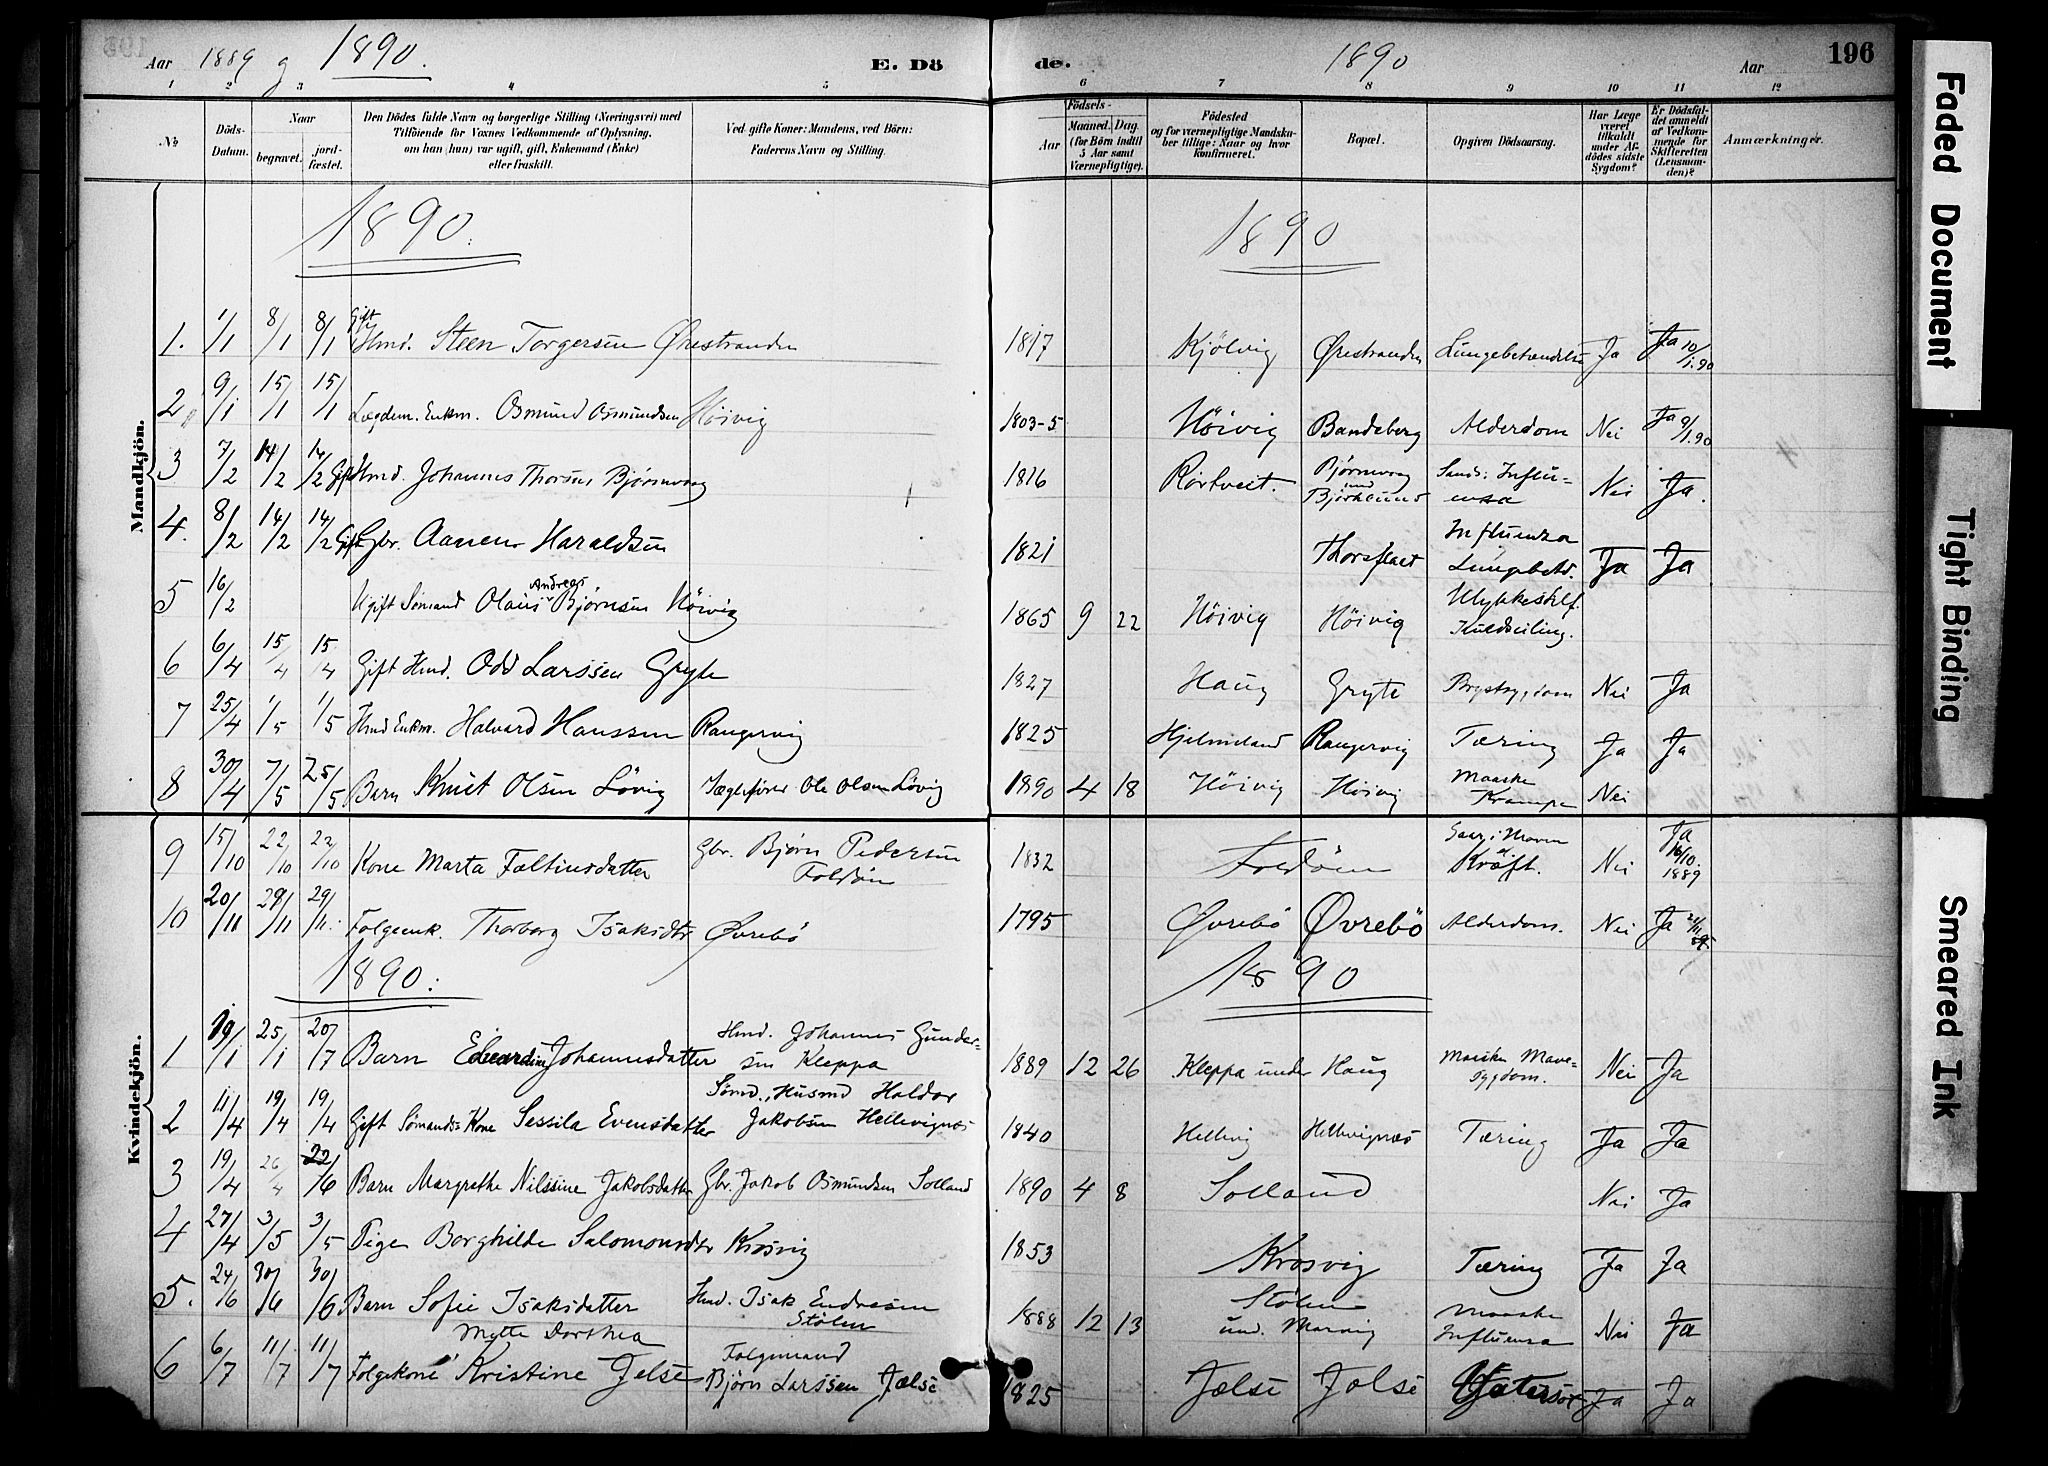 Aar 1889 og 1890. E. Dö
de. 1890 Aar 196
1 2 3 4 5 6 7 8 9 10 11 12
No.
Döds-Datum.
Naar
begravet.
jord-fæstet.
Den Dödes fulde Navn og borgerlige Stilling (Næringsvei) med
Tilföiende for Voxnes Vedkommende af Oplysning,
om han (hun) var ugift, gift, Enkemand (Enke)
eller fraskilt.
Ved gifte Koner: Mandens, ved Börn:
Faderens Navn og Stilling.
Födsels-
Aar
Maaned. Dag.
(for Börn indtil
5 Aar samt
Værnepligtige).
Födested
og for værnepligtige Mandska-
ber tillige: Naar og hvor
konfirmeret.
Bopæl.
Opgiven Dödsaarsag.
Har Læge
været
tilkaldt
under Af-
dödes sidste
Sygdom?
Er Dödsfal-
det anmeldt
af Vedkom-
mende for
Skifteretten
(Lensman-
den)?
Anmærkninger.
Mandkjön.
1890. 1890
1. 1/1 8/1 8/1 Gift Hmd. Steen Torgersen Ørestranden 1817 Kjölvig Ørestranden Lungebetændelse Ja Ja 10/1.90
2 9/1 15/1 15/1 Lægdem. Enkm. Osmund Osmundsen Höivig 1803-5 Höivig Bandeberg Alderdom Nei Ja 9/1.90
3 7/2 14/2 14/2 Gift Hmd. Johannes Thorsen Bjørnvaag 1816 Rörtveit. Bjørnvaag und Sands: Influ-
enza Nei Ja.
4. 8/2 14/2 14/2 Gift Gbr. Aanen Haraldsen 1821 Influenza
Lungebetd. Ja Ja
5 16/2 Ugift Sømand Olaus Andreas Bjørnsen Höivig 1865 9 22 Höivig Höivig Ulykkestilf.
Kuldseiling.
6 6/4 15/4 15/4 Gift Hmd. Odd Larssen Gryte 1827 Haug Gryte Brystsygdom Nei Ja
7 25/4 1/5 1/5 Hmd Enkm. Halvard Hanssen Rangervig 1825 Hjelmeland Rangervig Tæring Ja Ja
8 30/4 7/5 25/5 Barn Knut Olsen Lövig Ole Olsen Lövig 1890 4 18 Höivig Höivig Maaske
Krampe Nei
Kvindekjön.
9 15/10 22/10 22/10 Kone Marta Faltinsdatter Gbr. Bjørn Pedersen
Foldöen 1832 Foldöen Saar i Maven
Kræft. Nei Ja 16/10. 1889
10 20/11 29/11 29/11. Folgeenk. Thorborg Isaksdtr Øvrebö 1795 Øvrebö Øvrebö Alderdom. Nei Ja
1890. 1890
1 19/1 25/1 20/7 Barn Johannesdatter Hmd. Johannes Gunder-
sen Kleppa 1889 12 26 Kleppa under Haug Maaske Mave-
sygdom. Nei Ja
2 11/4 19/4 19/4 Gift Sømands Kone Sessila Evensdatter Sømd., Husmd Haldor
Jakobsen Hellevignæs 1840 Hellvig Hellvignæs Tæring Ja Ja
3 19/4 26/4 22/6 Barn Margrethe Nilssine Jakobsdatter Gbr. Jakob Osmundsen Solland 1890 4 8 Solland Nei Ja
4 27/4 3/5 3/5 Pige Borghilde Salomonsdtr Krosvig 1853 Krosvig Tæring Ja Ja
5. 24/6 30/6 30/6 Barn Sofie Isaksdatter Hmd. Isak Endresen
Stölen 1888 12 13 Stölen
und. Marvig Maaske
Influenza Nei Ja
6 6/7 11/7 11/7 Folgekone Mette Dorthea Kristine Jelse Folgemand
Björn Larssen Jælse 1825 Jælse Jalse Vatersot Ja Ja
Faded Document
Tight Binding
Smeared Ink